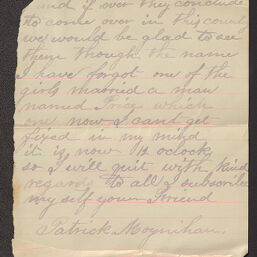 and if ever they conclude
to come over in this county
we would be glad to see
them though the name
I have forgot one of the
girls married a man
named Price which
one now I cant get
fixed in my mind
it is now 11 oclock
so I will quit with kind
regards to all I subscribe
my self your Friend
Patrick Moynihan.